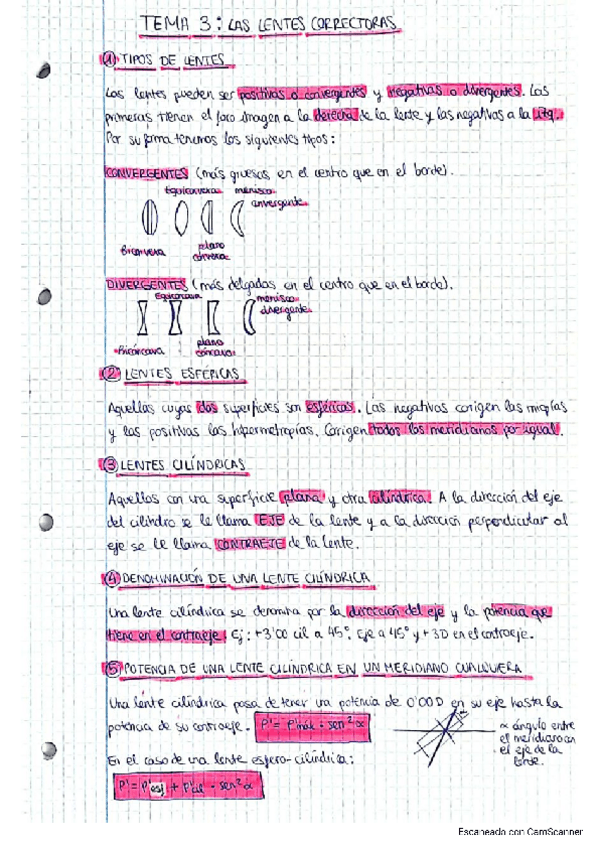 TEMA 3: LAS LENTES CORRECTORAS
① TIPOS DE LENTES
Las lentes pueden ser positivas o convergentes y negativas o divergentes. Las
primeras tienen el foco imagen a la derecha de la lente y las negativas a la izq.
Por su forma tenemos los siguientes tipos:
CONVERGENTES (más gruesas en el centro que en el borde).
Equiconvexa menisco
convergente
Biconvexa plano
convexa
DIVERGENTES (más delgadas en el centro que en el borde).
Equiconcava menisco
divergente
Bicóncava plano
cóncava
② LENTES ESFÉRICAS
Aquellas cuyas dos superficies son esféricas. Las negativas corrigen las miopías
y las positivas las hipermetropías. Corrigen todos los meridianos por igual.
③ LENTES CILÍNDRICAS
Aquellas con una superficie plana y otra cilíndrica. A la dirección del eje
del cilindro se le llama EJE de la lente y a la dirección perpendicular al
eje se le llama CONTRAEJE de la lente.
④ DENOMINACIÓN DE UNA LENTE CILÍNDRICA
Una lente cilíndrica se denomina por la dirección del eje y la potencia que
tiene en el contraeje. Ej: +3'00 cil a 45°, Eje a 45° y +3D en el contraeje.
⑤ POTENCIA DE UNA LENTE CILÍNDRICA EN UN MERIDIANO CUALQUIERA
Una lente cilíndrica pasa de tener una potencia de 0'00D en su eje hasta la
potencia de su contraeje. P' = P'máx · sen² α
α ángulo entre
el meridiano con
el eje de la
lente.
En el caso de una lente esfero-cilíndrica:
P' = P'esf + P'cil · sen² α
Escaneado con CamScanner